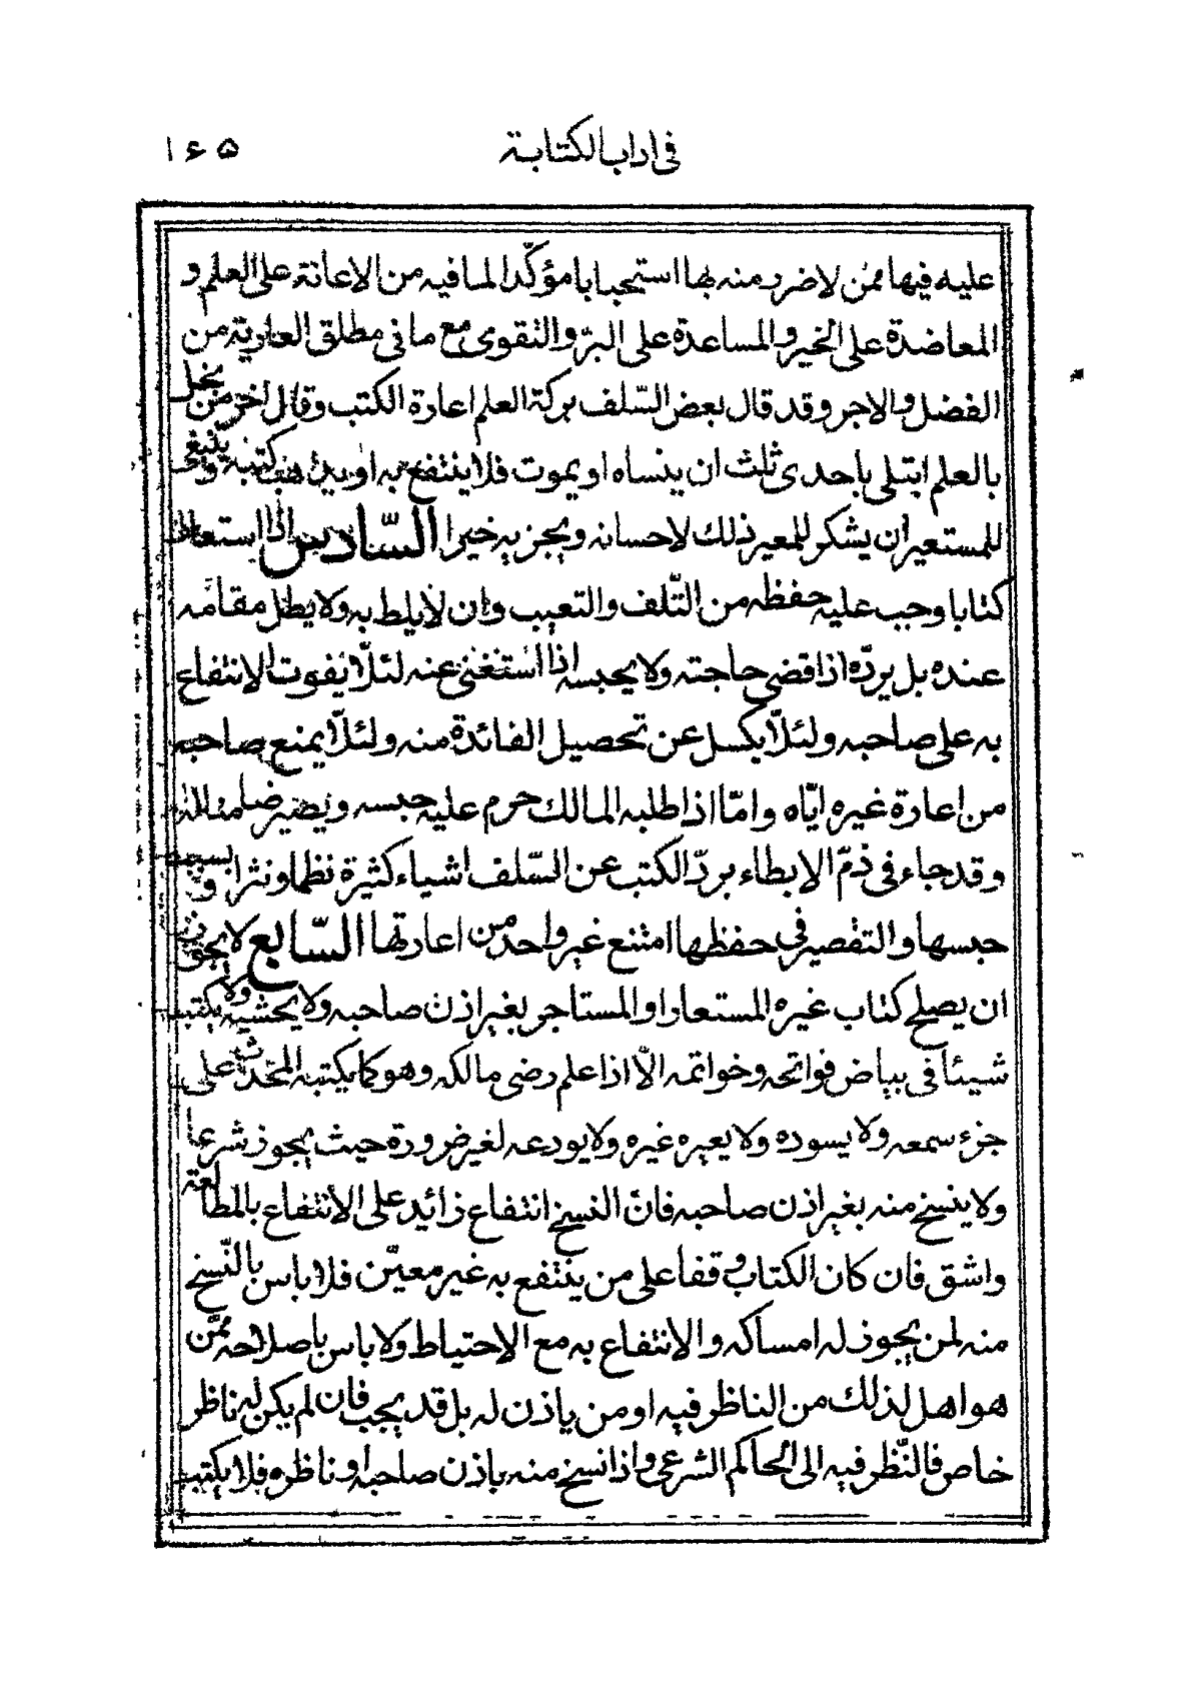 في اداب الكتابة ۱۶۵
عليه فيها ممّن لا ضرر منه بها استحبابا مؤكّدا لما فيه من الاعانة على العلم و
المعاضدة على الخير والمساعدة على البرّ والتقوى مع ما في مطلق العارية من
الفضل والاجر وقد قال بعض السّلف بركة العلم اعارة الكتب وقال اخر من بخل
بالعلم ابتلى باحدى ثلث ان ينساه او يموت فلا ينتفع به او يذهب كتبه وينبغي
للمستعير ان يشكر للمعير ذلك لاحسانه ويجزيه خيرا السّادس اذا استعار
كتابا وجب عليه حفظه من التّلف والتعيب وان لا يلط به ولا يطل مقامه
عنده بل يردّه اذا قضى حاجته ولا يحبسه اذا استغنى عنه لئلّا يفوت الانتفاع
به على صاحبه ولئلّا يكسل عن تحصيل الفائدة منه ولئلّا يمنع صاحبه
من اعارة غيره ايّاه وامّا اذا طلبه المالك حرم عليه حبسه ويصير ضامنا له
وقد جاء في ذمّ الابطاء بردّ الكتب عن السّلف اشياء كثيرة نظما ونثرا وبسبب
حبسها والتقصير في حفظها امتنع غير واحد من اعارتها السّابع لا يجوز
ان يصلح كتاب غيره المستعار او المستاجر بغير اذن صاحبه ولا يحشيه ولا يكتب
شيئا في بياض فواتحه وخواتمه الّا اذا علم رضى مالكه وهو كما يكتبه المحدّث على
جزء سمعه ولا يسوده ولا يعيره غيره ولا يودعه لغير ضرورة حيث يجوز شرعا
ولا ينسخ منه بغير اذن صاحبه فانّ النسخ انتفاع زائد على الانتفاع بالمطالعة
واشق فان كان الكتاب وقفا على من ينتفع به غير معيّن فلا باس بالنّسخ
منه لمن يجوز له امساكه والانتفاع به مع الاحتياط ولا باس باصلاحه ممّن
هو اهل لذلك من الناظر فيه او من ياذن له بل قد يجب فان لم يكن له ناظر
خاص فالنّظر فيه الى الحاكم الشرعي واذا نسخ منه باذن صاحبه او ناظره فلا يكتب